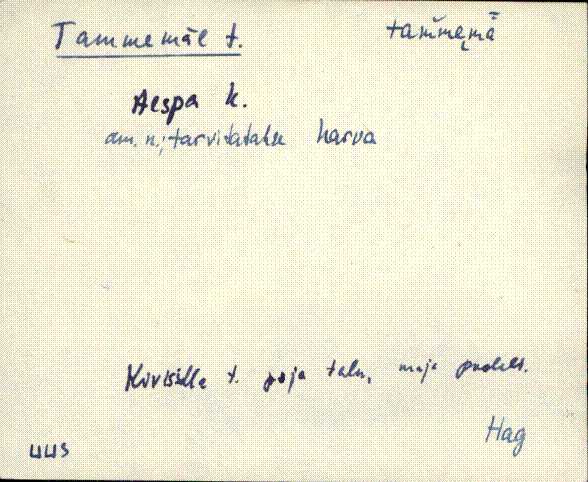 Tammemäe t. tam̆mem̨ǟ
Aespa k.
am. n.; tarvitatakse harva
Kivisilla t. poja talu, maja pooleli.
Hag
uus